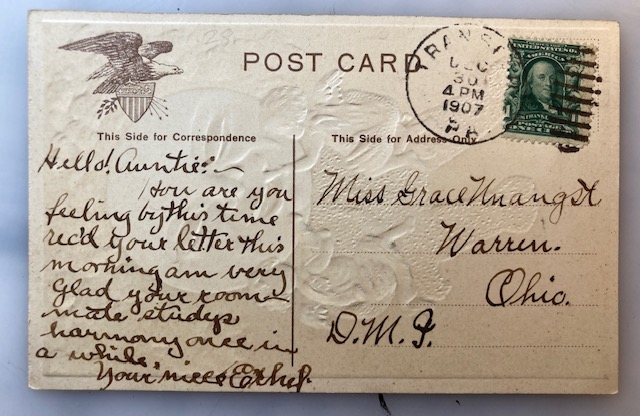 POST CARD
This Side for Correspondence
Hello! Auntie:~
How are you
feeling by this time
rec'd your letter this
morning am very
glad your room-
mate studys
harmony once in
a while.
Your niece Ethel.
This Side for Address Only
DEC
30
4 PM
1907
PA
UNITED STATES OF
AMERICA
FRANKLIN
POSTAGE
ONE CENT
Miss Grace Unangst
Warren.
Ohio.
D.M.I.